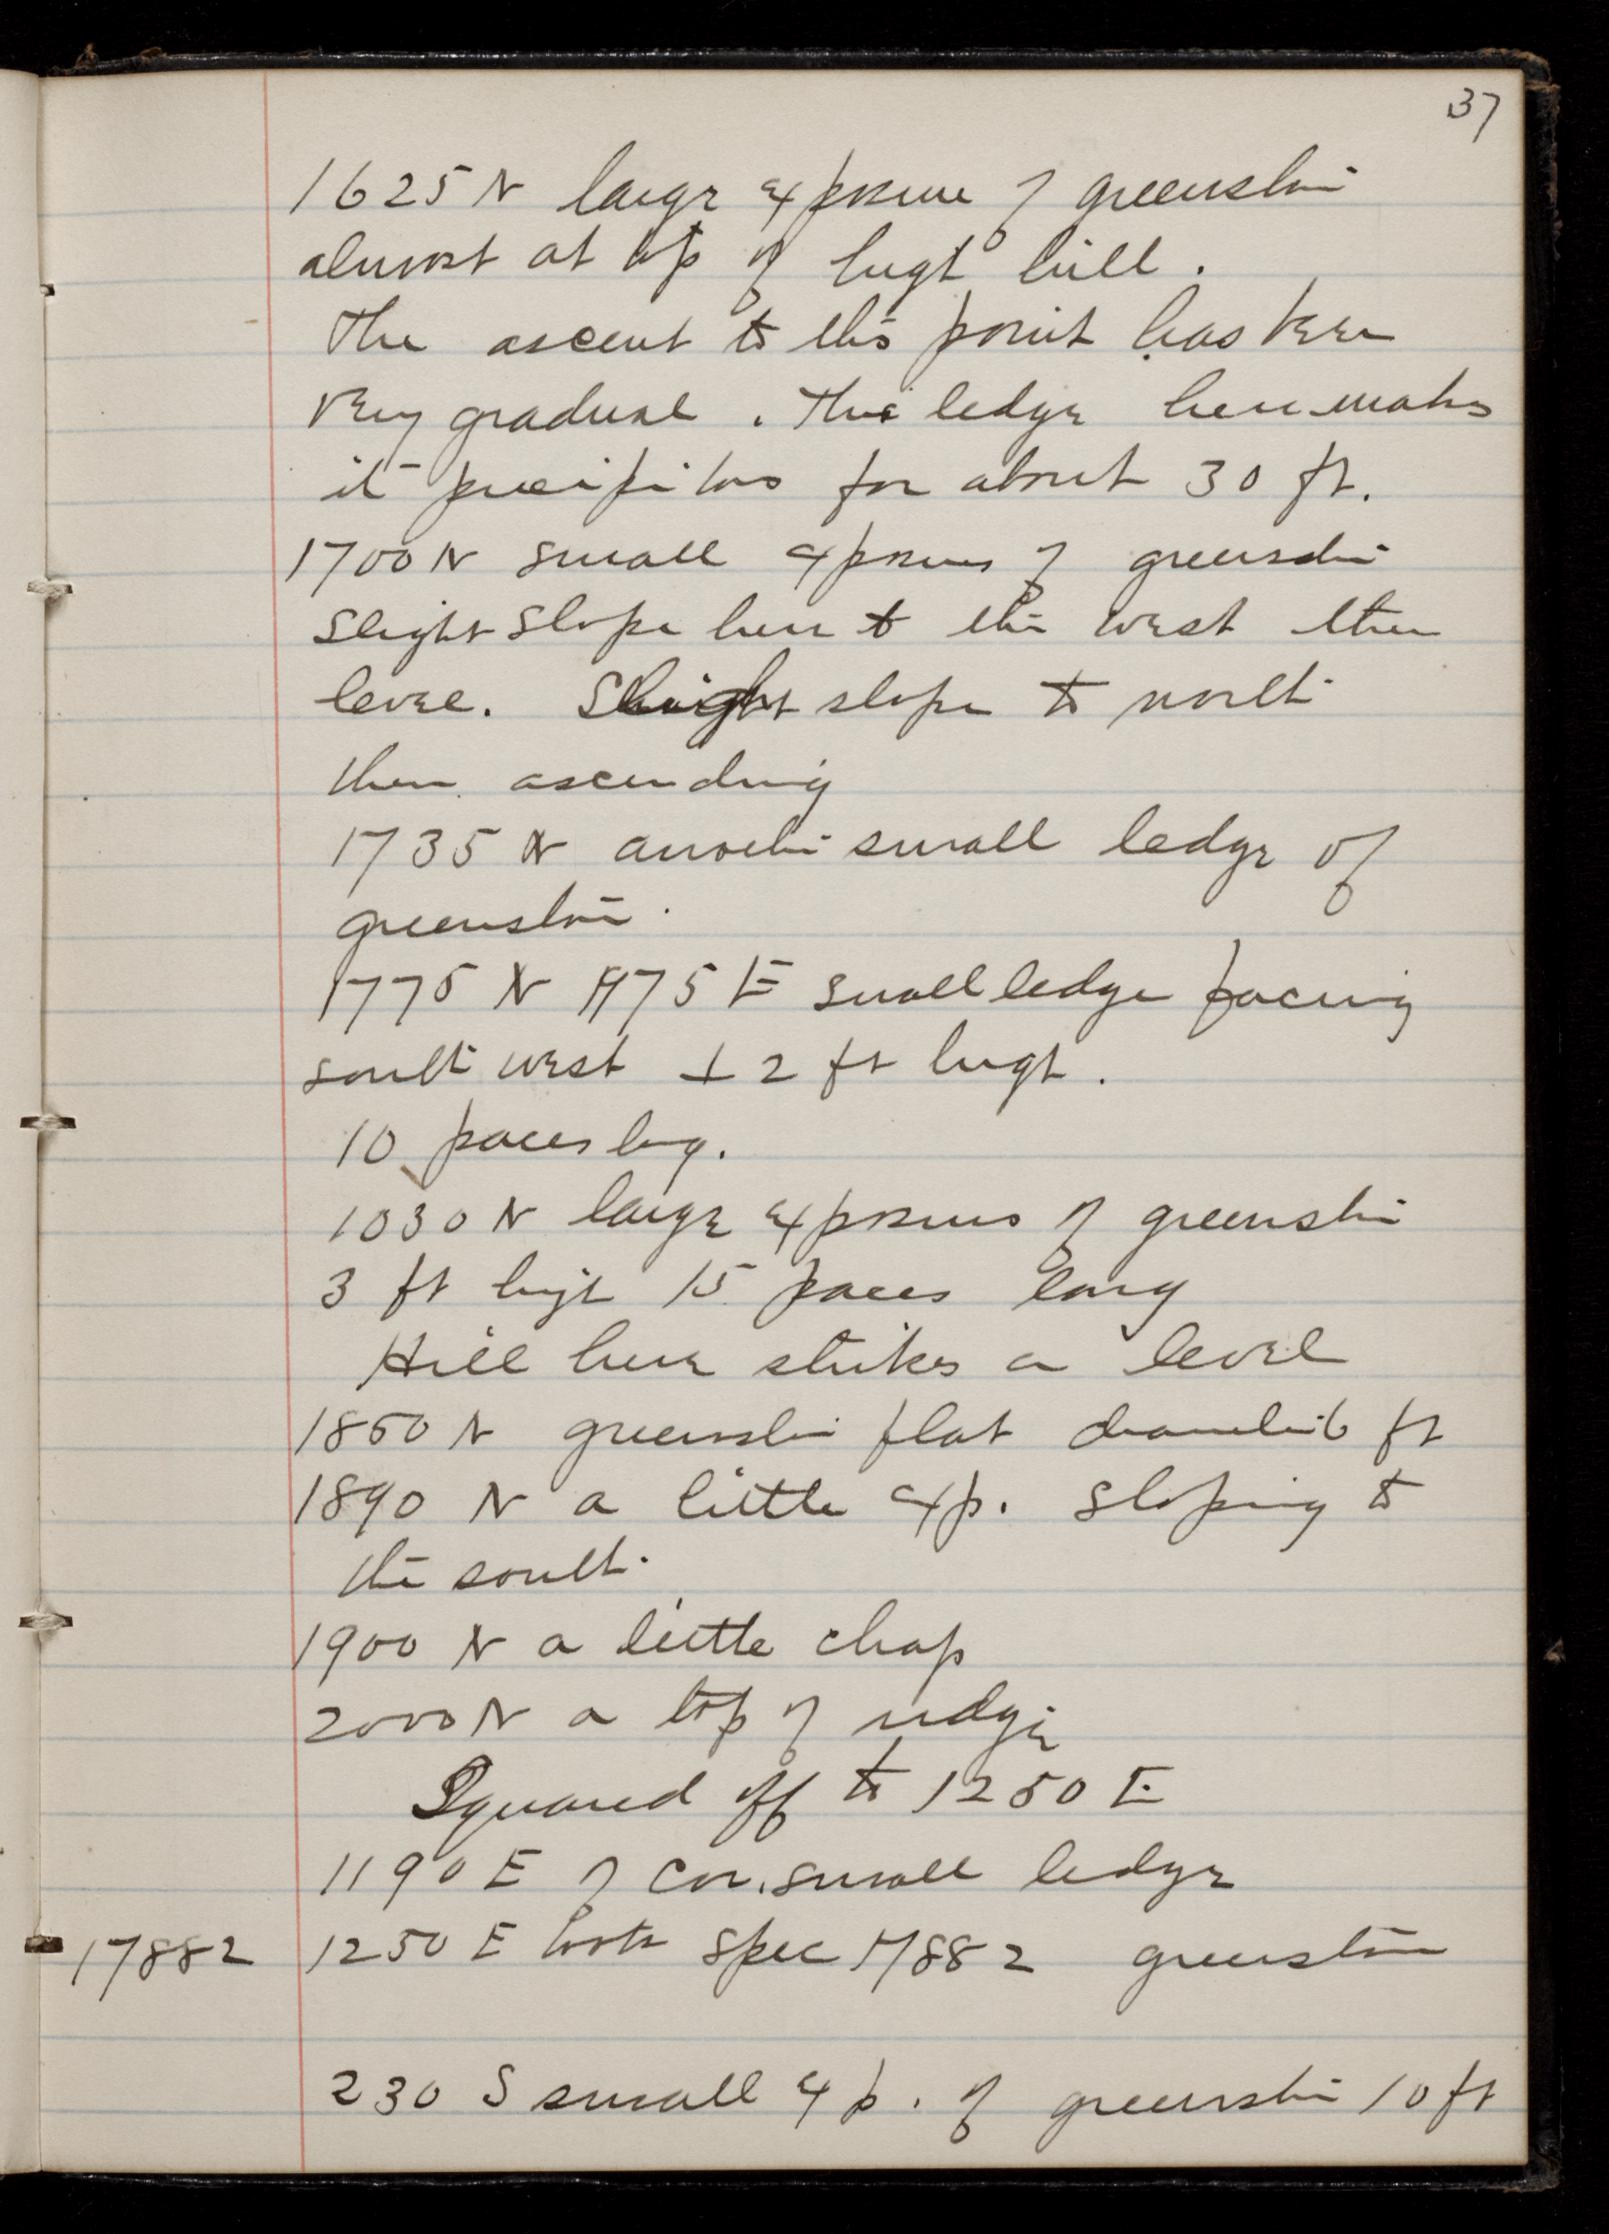 37
1625 N large exposure of greenstone
almost at top of hight hill.
The ascent to this point has been
very gradual. This ledge here makes
it precipitous for about 30 ft.
1700 N small exposures of greenstone
slight slope here to the west then
level. Slight slope to north
then ascending
1735 N another small ledge of
greenstone.
1775 N 1175 E small ledge facing
south west 12 ft hight.
10 paces long.
1030 N large exposures of greenstone
3 ft hight 15 paces long
Hill here strikes a level
1850 N greenstone flat diameter 6 ft
1890 N a little exp. sloping to
the south.
1900 N a little chap
2000 N a top of ridge
Squared off to 1250 E
1190 E of cor. small ledge
17882 1250 E took spec 17882 greenstone
230 S small exp. of greenstone 10 ft